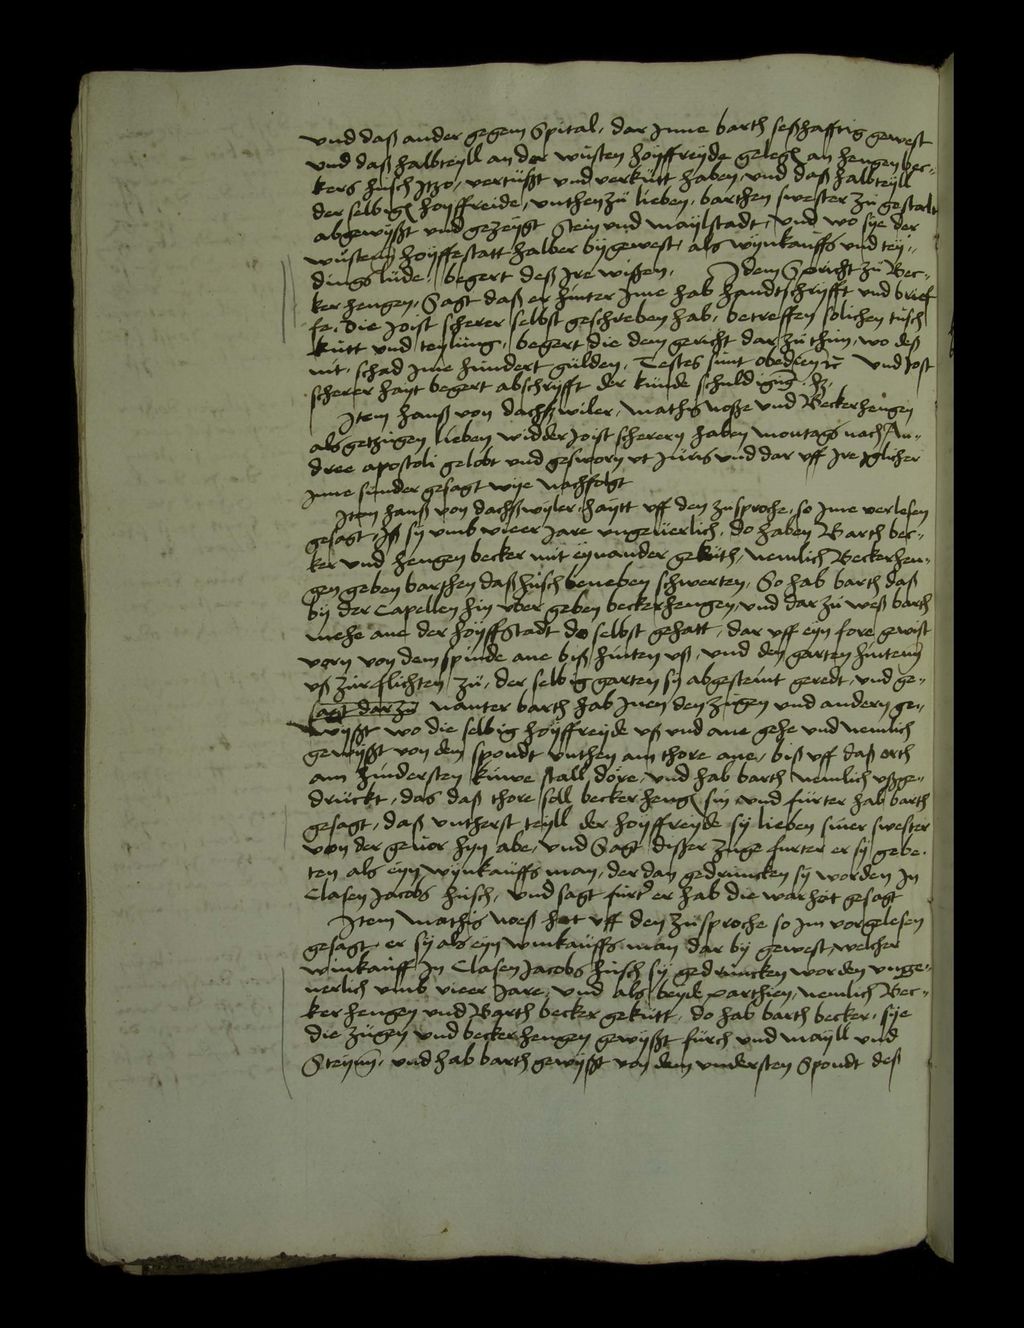 und daß ander gegem Spital, dar Inne barth seßhafftig gewest
und daß halbteyll an der wüsten hoyffreyde gelegen an hengen bec-
kers husch Itzo, vertußt und verkutt haben, und daß halbteyll
der selbigen hoyffreide, unthen zu lieben, barthen swester zu gestalt
abgewyßt und gezeygt Stein und maylstadt, und wo sye der
wusteny hoyffestatt halber bygewest, als wynkauffs und tey-
dings lüde, begert deß Ire wißen, Idem Spricht zu Bec-
ker hengen, Sagt daß er hinter Ime hab handtschryfft und brief
fe, die Joist scherer selbst geschreben hab, betreffen solichen tusch
kutt und teylung, begert die dem gericht dar zu thun, wo deß
nit, schad Ime hundert gulden, Testes sunt obedien und Jost
scherer hayt begert abschryfft der kunde schuldigung
Item hanß von dachßwiler, mathis noße und Becker hengen
als getzugen lieben widder Joist scherern haben montags nach An-
dree apostoli gelobt und gesworn ut Juris und dar uff Ire Iglicher
Inne sunder gesagt wye nachfolgt
Item hanß von dachßwyler, haytt uff den zusproche, so Ime verlesen
gesagt, Iß sy umb vieer Jare ungeverlich, do haben Barth bec-
ker und hengen becker mit eynander gekuth, nemlich Beckerhen-
gen geben barthen daß husch beneben schwerten, So hab barth daß
by der Capellen hin uber geben beckerhengen, und dar zu weß barth
mehe ane der hoyffstadt do selbst gehatt, dar uff eyn fore gewist
vorn von dem spinde ane biß hinten uß, und den garten hinteny
uß zur flichten zu, der selbig garten sy abgesteint geredt, und ge-
sagt dar zu nanter barth hab Inen den zugen und andern ge-
wyßt wo die selbig hoyffreyde uß und ane gehe und nemlich
gewyßt von dem spondt unthen am thore ane, biß uff daß orth
am hindersten kuwe stall dore, und hab barth nemlich ußge-
druckt, das daß thore soll becker hengen sin und furter hab barth
gesagt, daß untherst teyll der hoyffreyde sy lieben siner swester
von der gevor hyn abe, und Sagt disser zuge furter er sy gebe-
ten als eyn wynkauffs man, der dan gedruncken sy worden In
Clasen Jacobs husch, und sagt furter er hab die warheit gesagt
Item mathis noeß hat uff den zusproche so Im vorgelesen
gesagt er sy als eyn winkauffs man dar by gewest, welcher
winkauff In Clasen Jacobs husch sy gedruncken worden unge-
verlich umb vieer Jare, und als beyde parthien, nemlich Bec-
ker hengen und Barth becker gekutt, do hab barth becker, sye
die zugen und becker hengen gewyßt furch und mayll und
Steyny, und hab barth gewyßt von dem understen Spondt deß